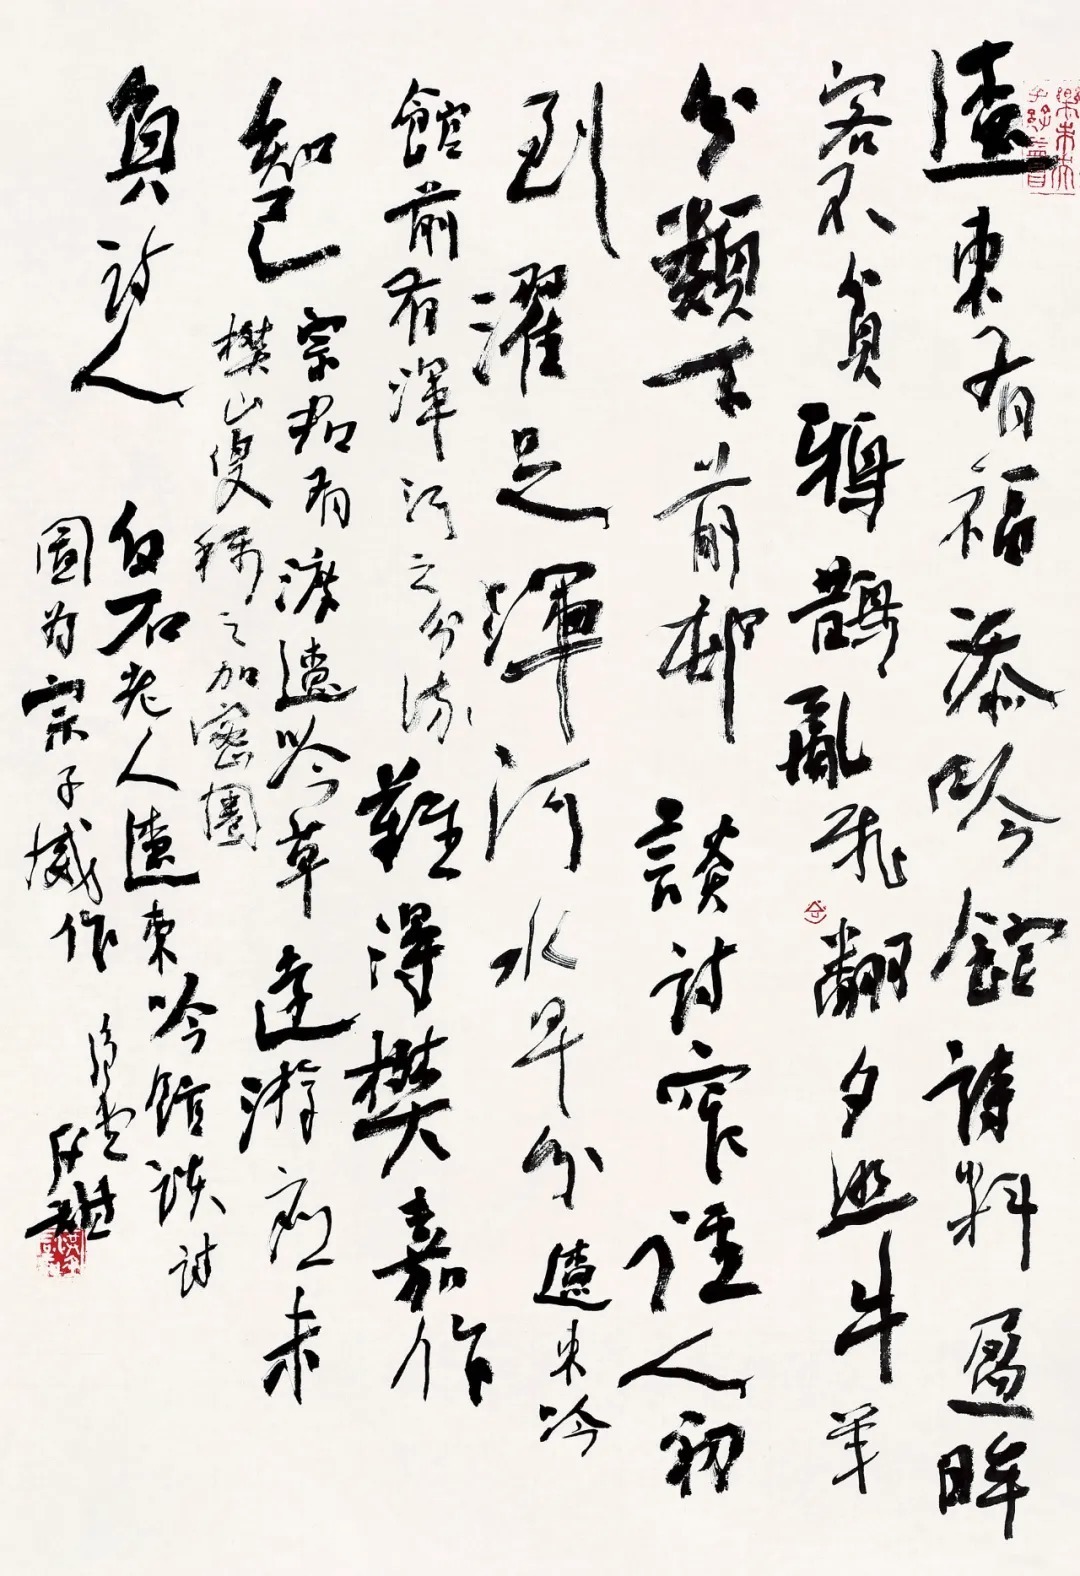 遼東有福添吟館詩料盈眸
客不貧鴉鵲亂飛翻夕照牛羊
分類下前邨談詩窄徑人初
到濯足渾河水早分遼東吟
館前有渾河之分流難得樊嘉作
知己宗君有渡遼吟草
樊山叟稱之加密圈
遠游應未
負詩人
白石老人遼東吟館談詩
圖為宗子威作